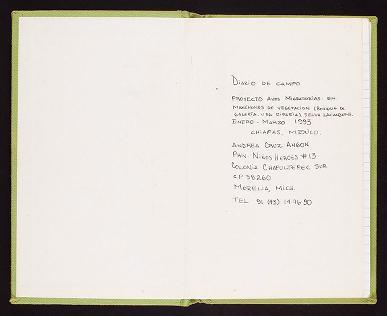 DIARIO DE CAMPO
PROYECTO AVES MIGRATORIAS EN
MANCHONES DE VEGETACION (BOSQUE DE
GALERIA, VEG. SELVA LACANDONA.
ENERO - MARZO 1993
CHIAPAS, MEXICO.
ANDREA CRUZ ANGON
NIÑOS HEROES #13
COLONIA CHAPULTEPEC SUR
CP 58260
MORELIA, MICH.
TEL 91 (43) 14 16 90